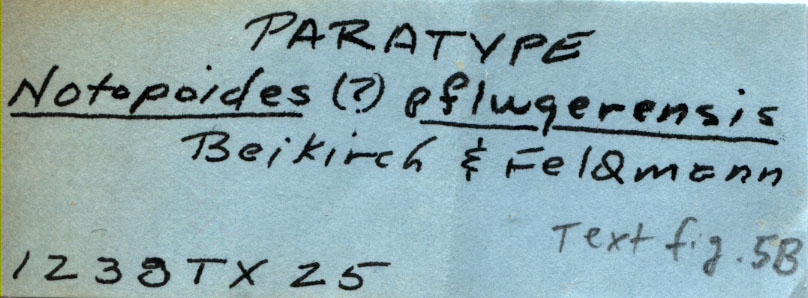 PARATYPE
Notopoides (?) pflugerensis
Beikirch & Feldmann
Text fig. 5B
1238TX25